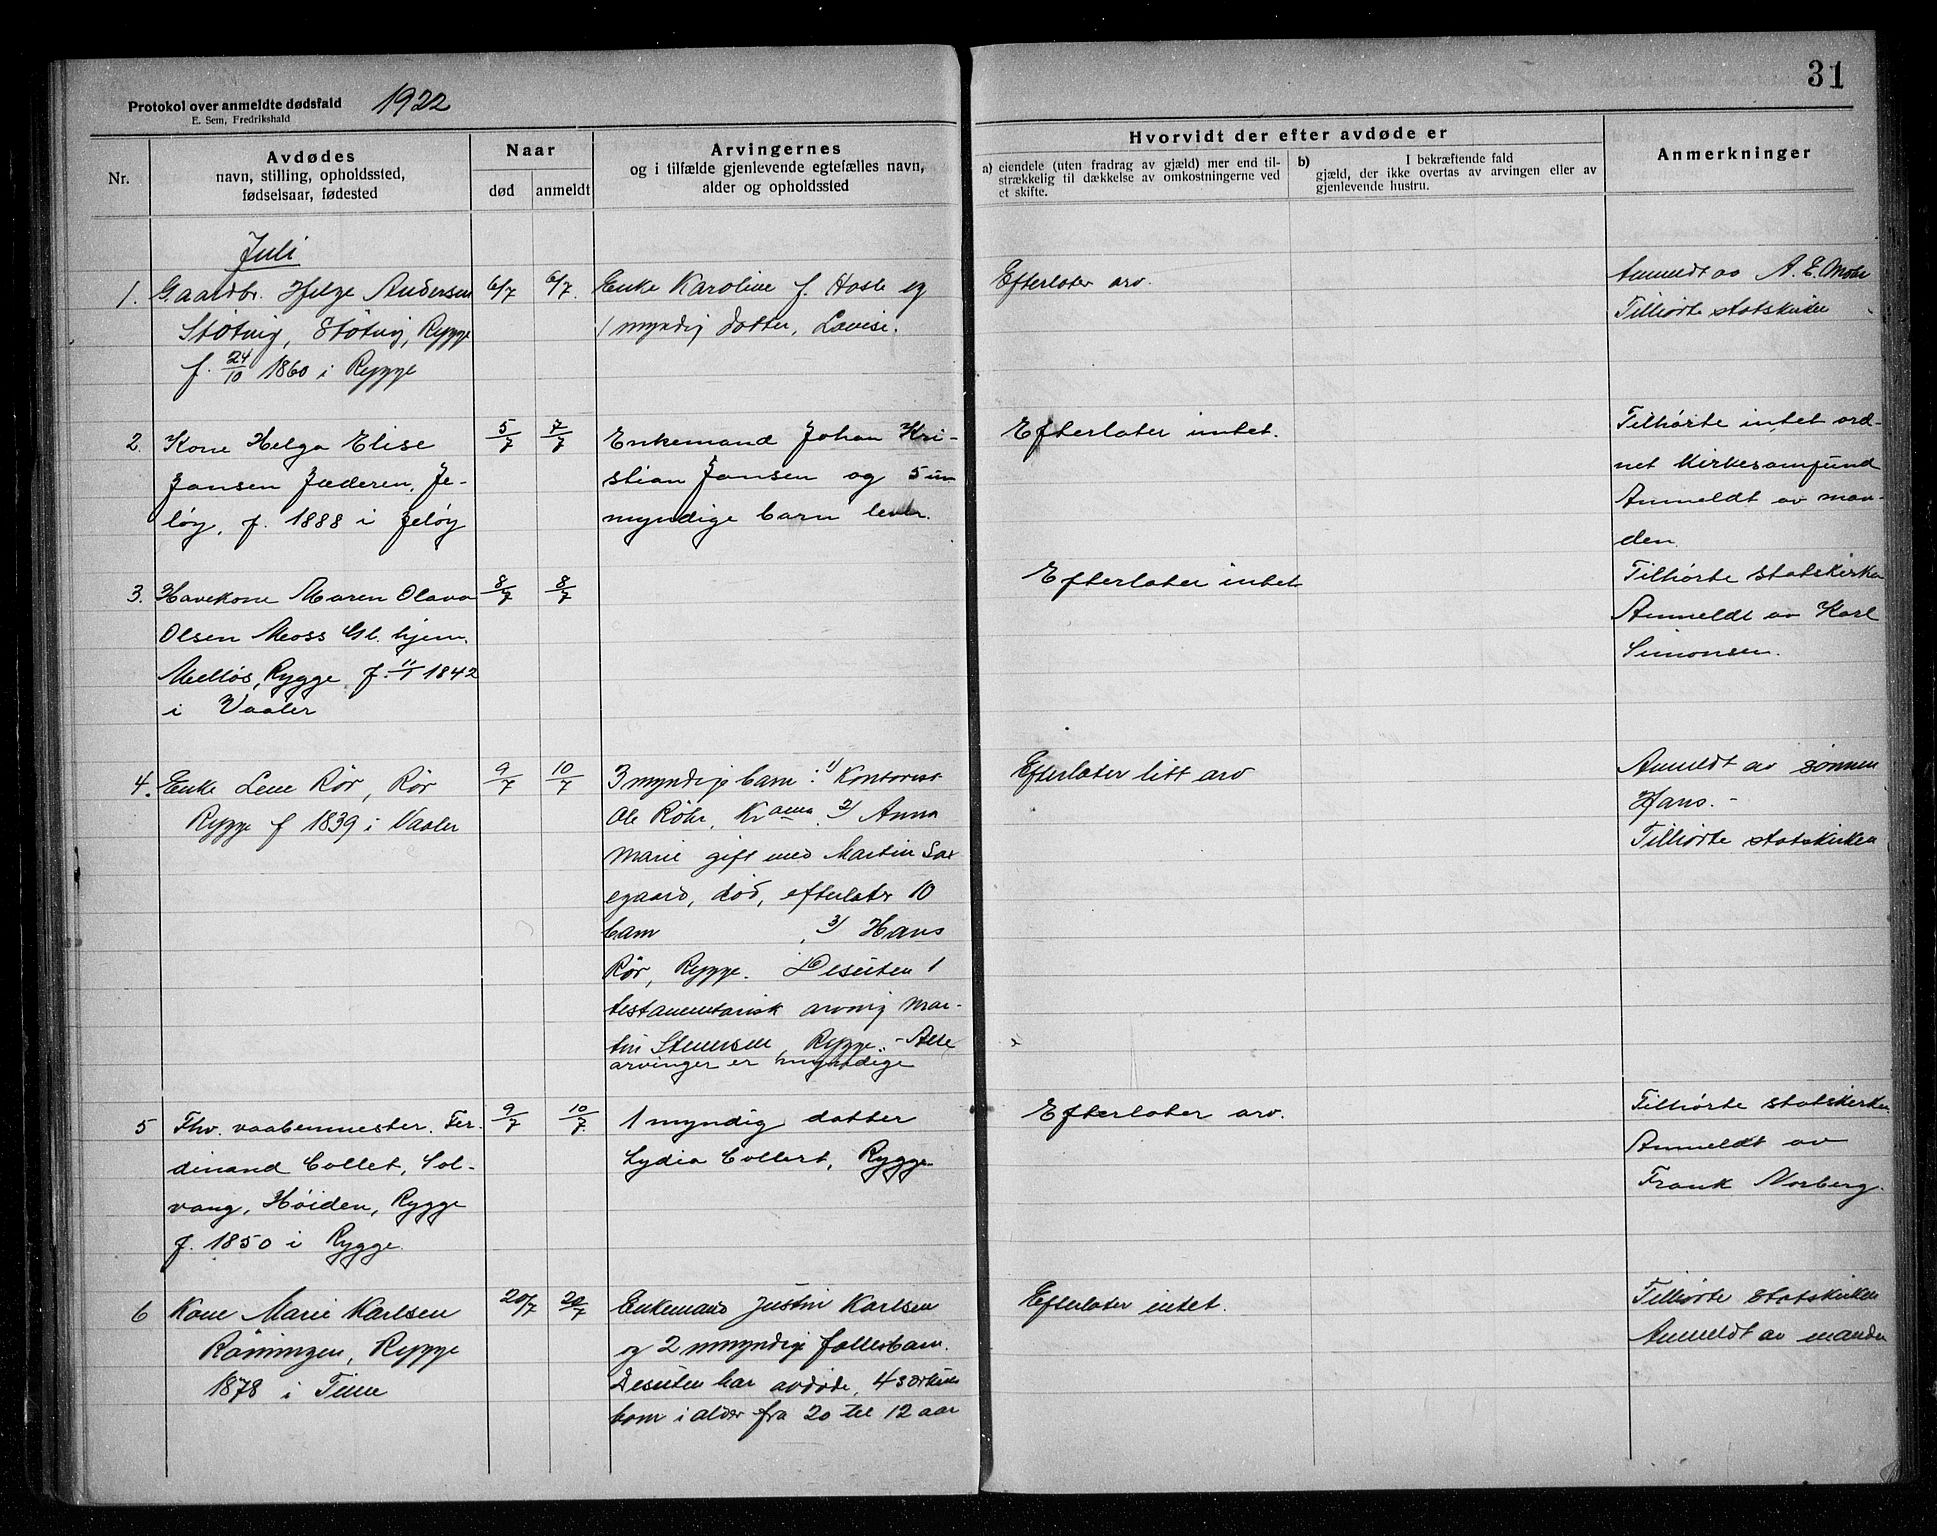 31
Protokol over anmeldte dødsfald 1922
E. Sem, Fredrikshald
Nr.
Avdødes
navn, stilling, opholdssted,
fødselsaar, fødested
Naar
død anmeldt
Arvingernes
og i tilfælde gjenlevende egtefælles navn,
alder og opholdssted
Hvorvidt der efter avdøde er
a) eiendele (uten fradrag av gjæld) mer end til-
strækkelig til dækkelse av omkostningerne ved
et skifte.
b) I bekræftende fald
gjæld, der ikke overtas av arvingen eller av
gjenlevende hustru.
Anmerkninger
Juli
1. Gaardbr. Helge Andersen
Støtvig, Støtvig, Rygge
f. 24/10 1860 i Rygge
6/7 6/7.
Enke Karoline f. Hasle og
1 myndig datter, Lovise.
Efterlater arv.
Anmeldt av A. E. Mohr
Tilhørte statskirken
2. Kone Helga Elise
Jansen Jæderen, Je-
løy, f. 1888 i Jeløy
5/7 7/7
Enkemand Johan Kri-
stian Jansen og 5 um
myndige barn lever.
Efterlater intet.
Tilhørte intet ord-
net kirkesamfund
Anmeldt av man-
den.
3. Havekone Maren Olava
Olsen Moss Gl. hjem.
Melløs, Rygge f. 11/1 1842
i Vaaler
8/7 8/7
Efterlater intet
Tilhørte statskirken
Anmeldt av Karl
Simonsen.
4. Enke Lene Rør, Rør
Rygge f 1839 i Vaaler
9/7 10/7
3 myndige barn: 1) Kontorist
Ole Röhr, Kr.ania 2) Anna
Marie gift med Martin Sax
egaard, død, efterlater 10
barn , 3) Hans
Rør, Rygge. Desuten 1
testamentarisk arving Mar-
tin Stenersen, Rygge. - Alle
arvinger er myndige
Efterlater litt arv
Anmeldt av sønnen
Hans. -
Tilhørte statskirken
5 Fhv. vaabenmester. Fer-
dinand Collet, Sol-
vang, Høiden, Rygge
f. 1850 i Rygge.
9/7 10/7.
1 myndig datter
Lydia Collert, Rygge.
Efterlater arv.
Tilhørte statskirken.
Anmeldt av
Frank Norberg.
6 Kone Marie Karlsen
Rønningen, Rygge
1878 i Tune
20/7 20/7
Enkemand Justin Karlsen
og 2 umyndige fællesbarn.
Desuten har avdøde, 4 særkuls
barn i alder fra 20 til 12 aar
Efterlater intet.
Tilhørte statskirken
Anmeldt av manden